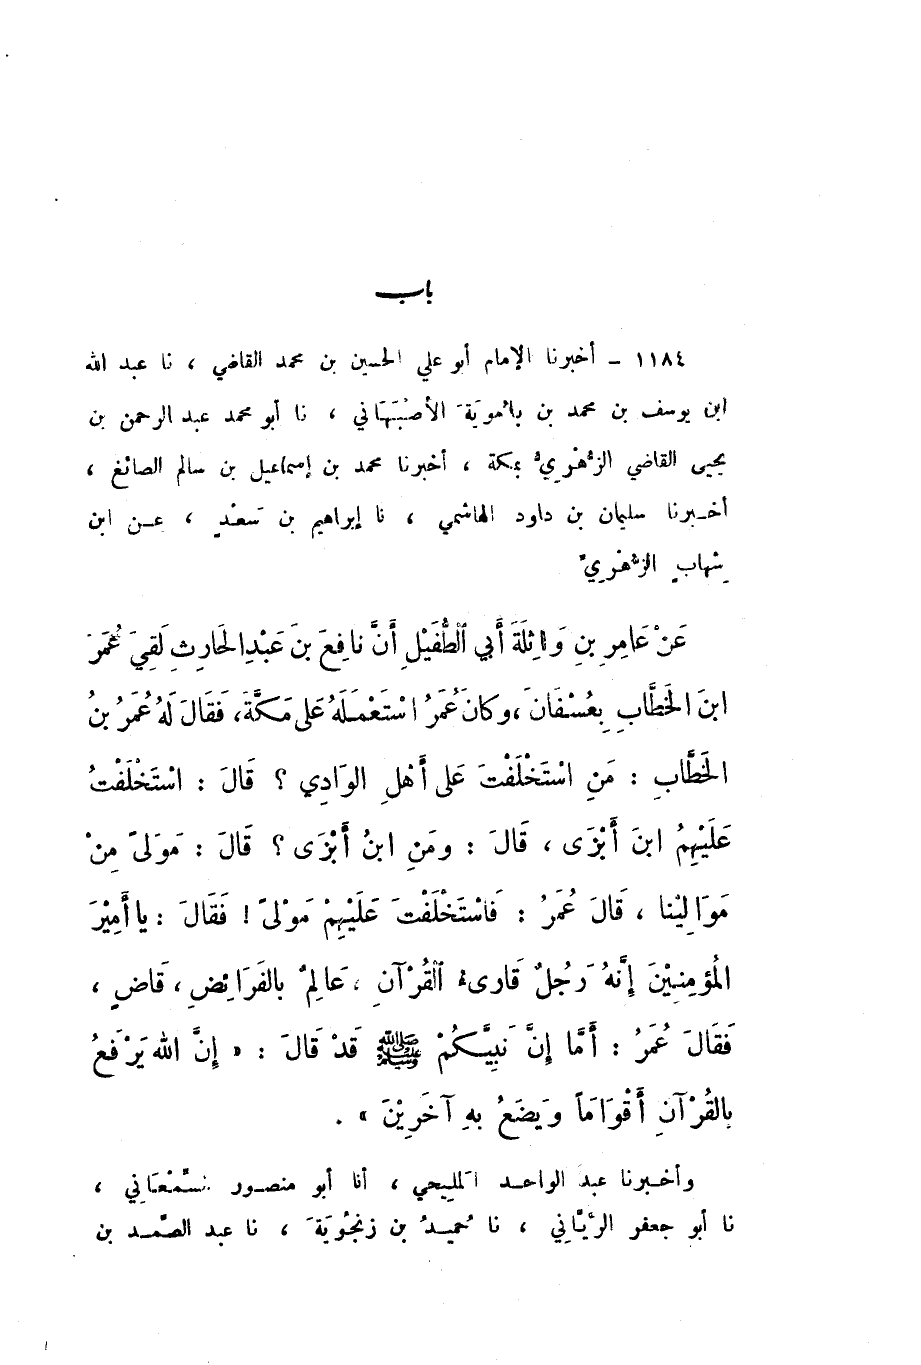 باب
١١٨٤ - أخبرنا الإمام أبو علي الحسين بن محمد القاضي ، نا عبد الله
ابن يوسف بن محمد بن بامُويَةَ الأصْبَهاني ، نا أبو محمد عبد الرحمن بن
يحيى القاضي الزُّهْريُّ بمكة ، أخبرنا محمد بن إسماعيل بن سالم الصائغ ،
أخبرنا سليمان بن داود الهاشمي ، نا إبراهيم بن سَعْدٍ ، عن ابن
شِهابٍ الزُّهْرِيِّ
عَنْ عَامِرِ بنِ وَاثِلَةَ أَبي الطُّفَيْلِ أَنَّ نافِعَ بنَ عَبْدِ الحَارِثِ لَقِيَ عُمَرَ
ابنَ الخَطَّابِ بِعُسْفَانَ ، وكانَ عُمَرُ اسْتَعْمَلَهُ عَلى مَكَّةَ ، فَقَالَ لَهُ عُمَرُ بنُ
الخَطَّابِ : مَنِ اسْتَخْلَفْتَ عَلى أَهْلِ الوَادِي ؟ قَالَ : اسْتَخْلَفْتُ
عَلَيْهِمُ ابنَ أَبْزَى ، قَالَ : ومَنِ ابنُ أَبْزَى ؟ قَالَ : مَوْلىً مِنْ
مَوَالِيْنا ، قَالَ عُمَرُ : فَاسْتَخْلَفْتَ عَلَيْهِمْ مَوْلىً ! فَقَالَ : يا أَمِيْرَ
المُؤمِنِيْنَ إِنَّهُ رَجُلٌ قَارىءُ القُرْآنِ ، عَالِمٌ بالفَرَائِضِ ، قَاضٍ ،
فَقَالَ عُمَرُ : أَمَّا إِنَّ نَبِيَّكُمْ ﷺ قَدْ قَالَ : « إِنَّ اللهَ يَرْفَعُ
بِالقُرْآنِ أَقْوَامَاً ويَضَعُ بهِ آخَرِيْنَ » .
وأخبرنا عبدُ الواحد المليحي ، أنا أبو منصور السَّمْعَاني ،
نا أبو جعفر الرَّيَّاني ، نا حُميدُ بن زنجُوَيَةَ ، نا عبد الصَّمد بن